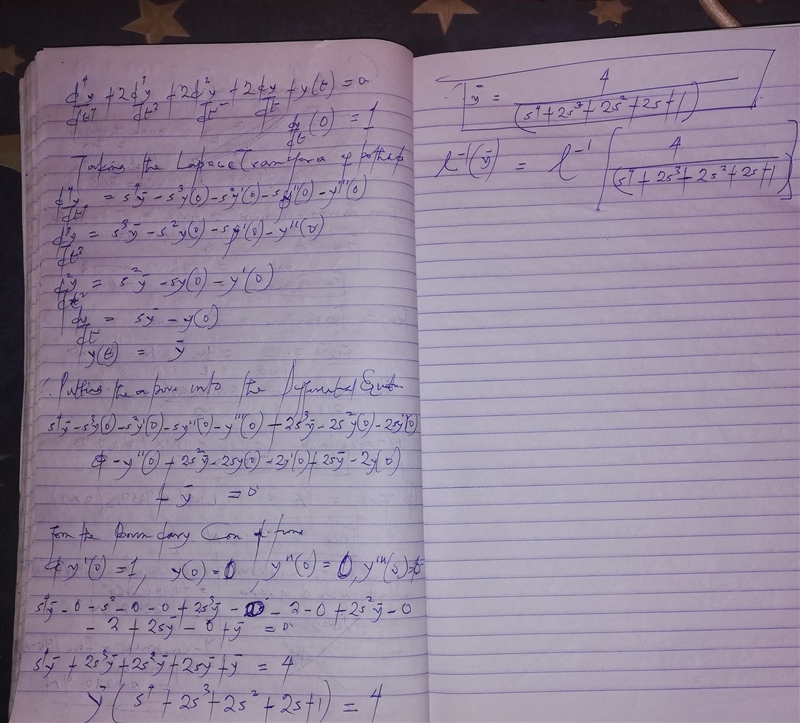 d⁴y/dt⁴ + 2d³y/dt³ + 2d²y/dt² + 2dy/dt + y(t) = 0
dy/dt (0) = 1
Taking the Lapace Transform of both
d⁴y/dt⁴ = s⁴ȳ - s³y(0) - s²y'(0) - sy''(0) - y'''(0)
d³y/dt³ = s³ȳ - s²y(0) - sy'(0) - y''(0)
d²y/dt² = s²ȳ - sy(0) - y'(0)
dy/dt = sȳ - y(0)
y(t) = ȳ
∴ Putting the above into the Differential Equation
s⁴ȳ - s³y(0) - s²y'(0) - sy''(0) - y'''(0) + 2s³ȳ - 2s²y(0) - 2sy'(0)
- y''(0) + 2s²ȳ - 2sy(0) - 2y'(0) + 2sȳ - 2y(0)
+ ȳ = 0
From the Boundary Condition
y'(0) = 1, y(0) = 0, y''(0) = 0, y'''(0) = 0
s⁴ȳ - 0 - s² - 0 - 0 + 2s³ȳ - 0 - 2 - 0 + 2s²ȳ - 0
- 2 + 2sȳ - 0 + ȳ = 0
s⁴ȳ + 2s³ȳ + 2s²ȳ + 2sȳ + ȳ = 4
ȳ (s⁴ + 2s³ + 2s² + 2s + 1) = 4
∴ ȳ = 4/(s⁴ + 2s³ + 2s² + 2s + 1)
L⁻¹(ȳ) = L⁻¹ [4/(s⁴ + 2s³ + 2s² + 2s + 1)]